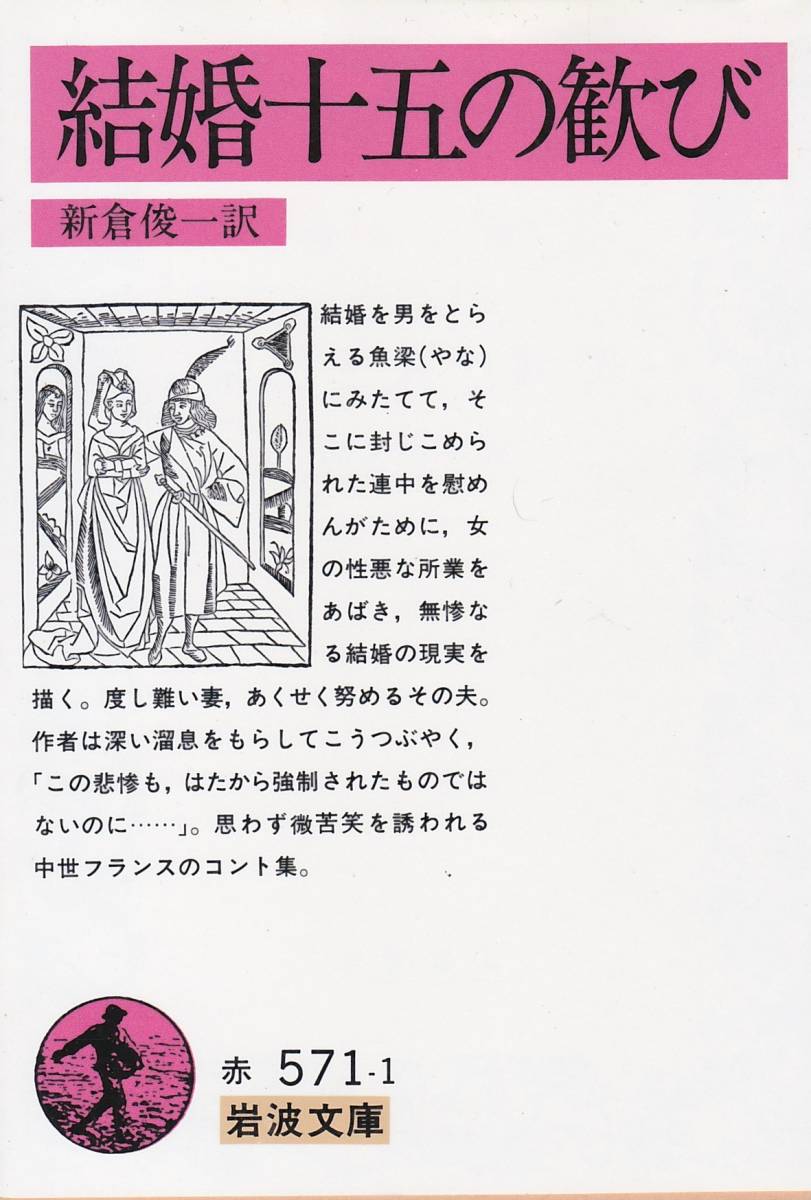 結婚十五の歓び
新倉俊一訳
結婚を男をとら
える魚梁(やな)
にみたてて，そ
こに封じこめら
れた連中を慰め
んがために，女
の性悪な所業を
あばき，無惨な
る結婚の現実を
描く。度し難い妻，あくせく努めるその夫。
作者は深い溜息をもらしてこうつぶやく，
「この悲惨も，はたから強制されたものでは
ないのに……」。思わず微苦笑を誘われる
中世フランスのコント集。
赤 571-1
岩波文庫